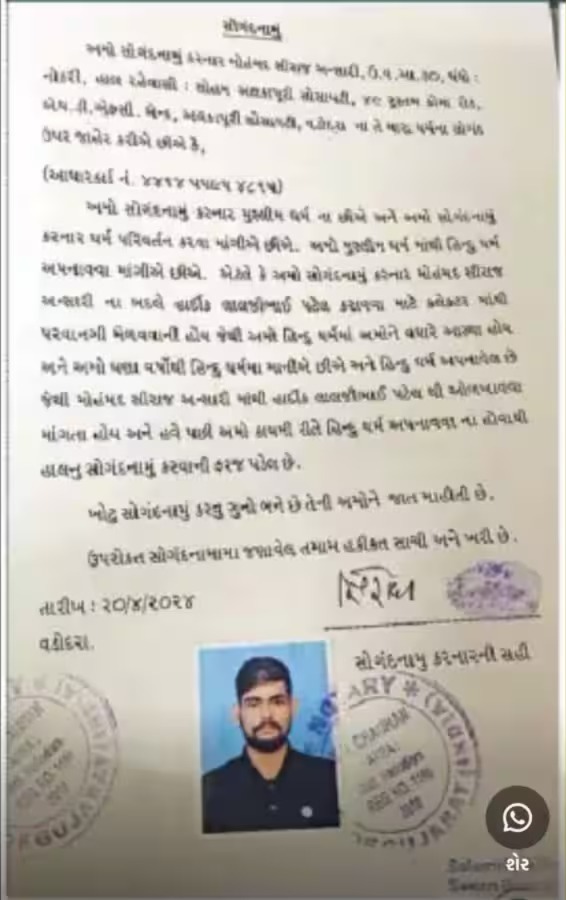 સોગંદનામું
અમો સોગંદનામું કરનાર મોહંમદ સીરાજ અન્સારી, ઉ.વ.આ.૩૦, ધંધો :
નોકરી, હાલ રહેવાસી : સોહમ અલકાપુરી સોસાયટી, ૪૯ રૂસ્તમ કામા રોડ,
એચ.ડી.એફ.સી. બેન્ક, અલકાપુરી સોસાયટી, વડોદરા ના તે મારા ધર્મના સોગંદ
ઉપર જાહેર કરીએ છીએ કે,
(આધારકાર્ડ નં. ૪૪૧૪ ૫૫૯૫ ૪૮૧૫)
અમો સોગંદનામું કરનાર મુસ્લીમ ધર્મ ના છીએ અને અમો સોગંદનામું
કરનાર ધર્મ પરિવર્તન કરવા માંગીએ છીએ. અમો મુસ્લીમ ધર્મ માંથી હિન્દુ ધર્મ
અપનાવવા માંગીએ છીએ. એટલે કે અમો સોગંદનામું કરનાર મોહંમદ સીરાજ
અન્સારી ના બદલે હાર્દીક લાલજીભાઈ પટેલ કરાવવા માટે કલેક્ટર માંથી
પરવાનગી મેળવવાની હોય જેથી અમો હિન્દુ ધર્મમાં અમોને વધારે આસ્થા હોય
અને અમો ઘણા વર્ષોથી હિન્દુ ધર્મમા માનીએ છીએ અને હિન્દુ ધર્મ અપનાવેલ છે
જેથી મોહંમદ સીરાજ અન્સારી માંથી હાર્દીક લાલજીભાઈ પટેલ થી ઓળખાવવા
માંગતા હોય અને હવે પછી અમો કાયમી રીતે હિન્દુ ધર્મ અપનાવવા ના હોવાથી
હાલનુ સોગંદનામું કરવાની ફરજ પડેલ છે.
ખોટુ સોગંદનામું કરવુ ગુનો બને છે તેની અમોને જાત માહીતી છે.
ઉપરોક્ત સોગંદનામામા જણાવેલ તમામ હકીકત સાચી અને ખરી છે.
તારીખ : ૨૦/૪/૨૦૨૪
વડોદરા.
સોગંદનામુ કરનારની સહી
NOTARY
GUJARAT (INDIA)
શેર